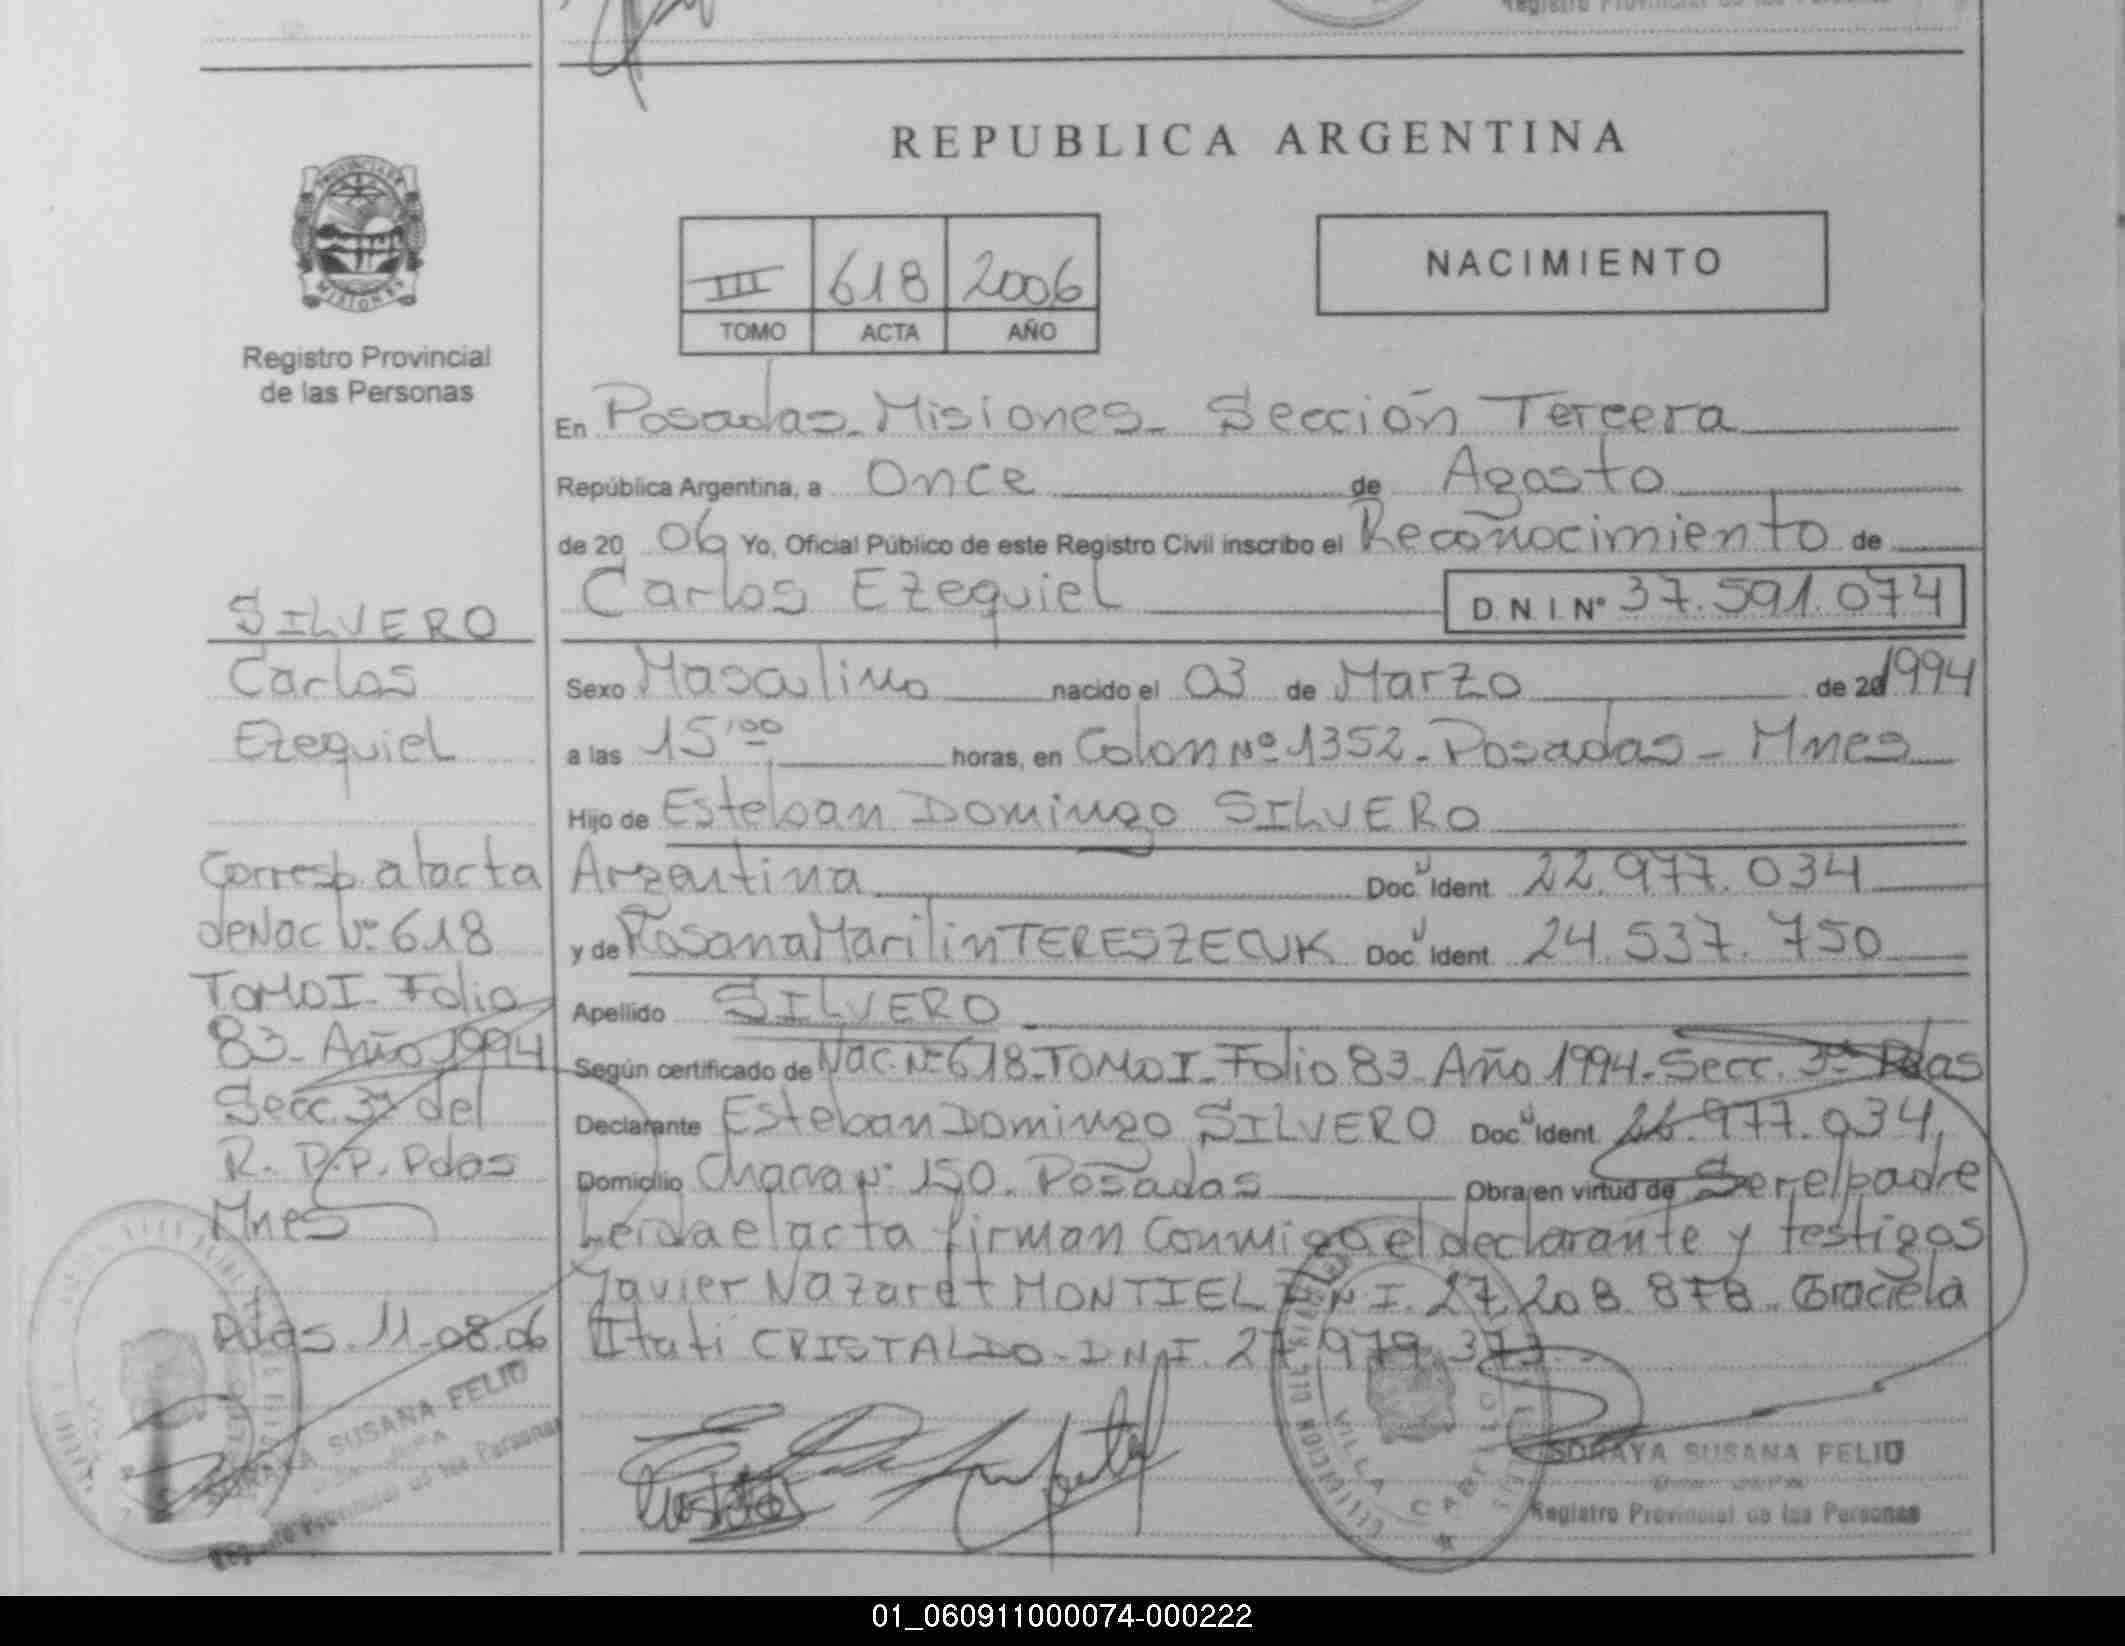 Registro Provincial de las Personas
REPUBLICA ARGENTINA
PROVINCIA DE
MISIONES
Registro Provincial
de las Personas
III 618 2006
TOMO ACTA AÑO
NACIMIENTO
En Posadas - Misiones - Sección Tercera
República Argentina, a Once de Agosto
de 20 06 Yo, Oficial Público de este Registro Civil inscribo el Reconocimiento de
Carlos Ezequiel D.N.I. Nº 37.591.074
Sexo Masculino nacido el 03 de Marzo de 20 1994
a las 15'00 horas, en Colon Nº 1352 - Posadas - Mnes
Hijo de Esteban Domingo SILVERO
Argentina Doc. Ident. 22.977.034
y de Rosana Marilin TERESZECUK Doc. Ident. 24.537.750
Apellido SILVERO
Según certificado de Nac. Nº 618 - TOMO I - Folio 83 - Año 1994 - Secc. 3ª Pdas
Declarante Esteban Domingo SILVERO Doc. Ident. 22.977.034,
Domicilio Chacra Nº 150. Posadas Obra en virtud de Ser el padre
Leída el acta firman Conmigo el declarante y testigos
Javier Nazaret MONTIEL D.N.I. 27.208.878. Graciela
Itati CRISTALDO - D.N.I. 27.979.373.
SORAYA SUSANA FELIU
Registro Provincial de las Personas
VILLA CABELLO
SILVERO
Carlos
Ezequiel
Corresp. a l acta
de Nac Nº 618
TOMO I - Folio
83 - Año 1994
Secc. 3ª del
R. P. P. Pdas
Mnes
Pdas. 11-08-06
SORAYA SUSANA FELIU
Registro Provincial de las Personas
01_060911000074-000222